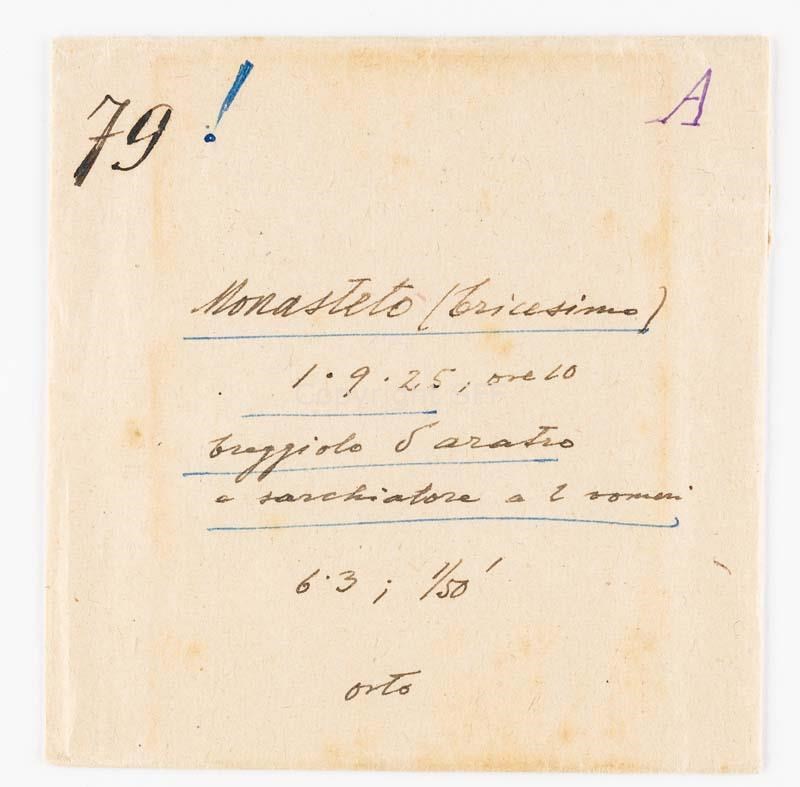 79 ! A
Monasteto (Tricesimo)
1.9.25, ore 10
treggiolo d'aratro
e sarchiatore a 2 vomeri
6.3 ; 1/50'
orto